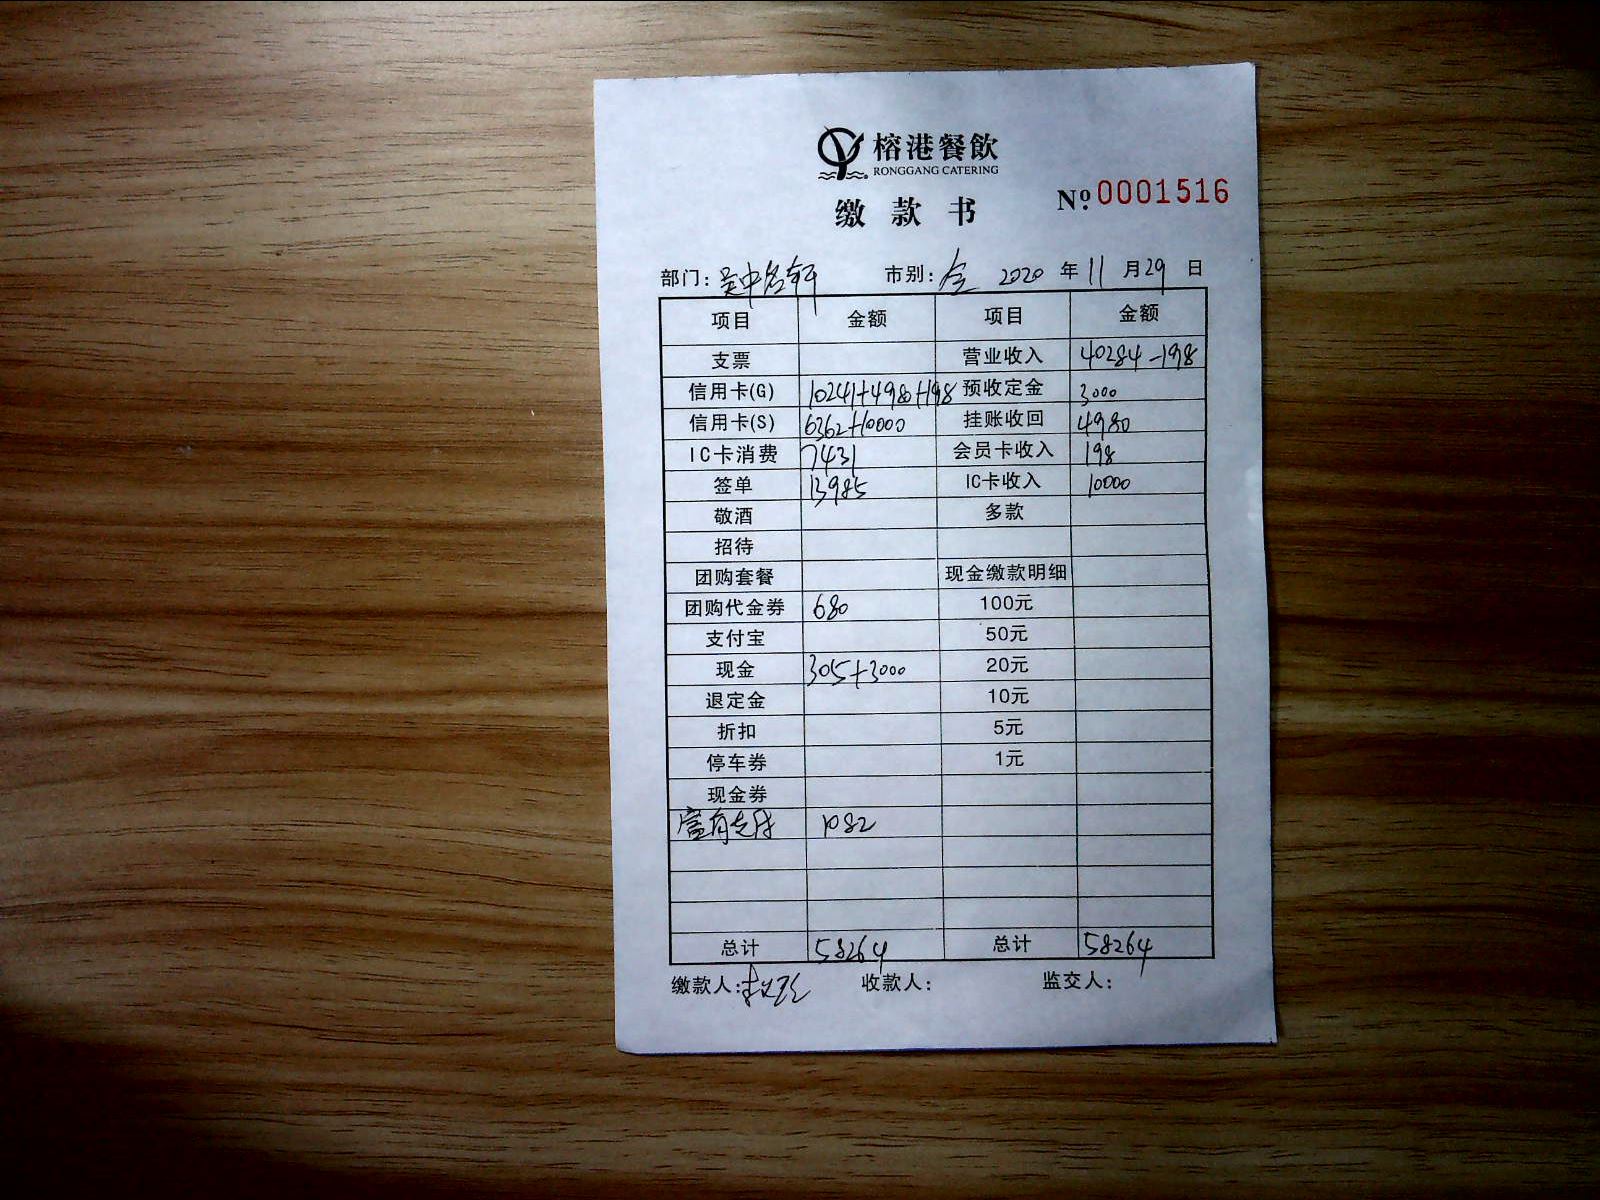 榕港餐飲
RONGGANG CATERING
缴款书 № 0001516
部门: 吴中名轩 市别: 全 2020 年 11 月 29 日
项目 金额 项目 金额
支票 营业收入 40284-198
信用卡(G) 10241+4980+198 预收定金 3000
信用卡(S) 6362+10000 挂账收回 4980
IC卡消费 7431 会员卡收入 198
签单 13985 IC卡收入 10000
敬酒 多款
招待
团购套餐 现金缴款明细
团购代金券 680 100元
支付宝 50元
现金 305+3000 20元
退定金 10元
折扣 5元
停车券 1元
现金券
富有支付 1082
总计 58264 总计 58264
缴款人: 收款人: 监交人: